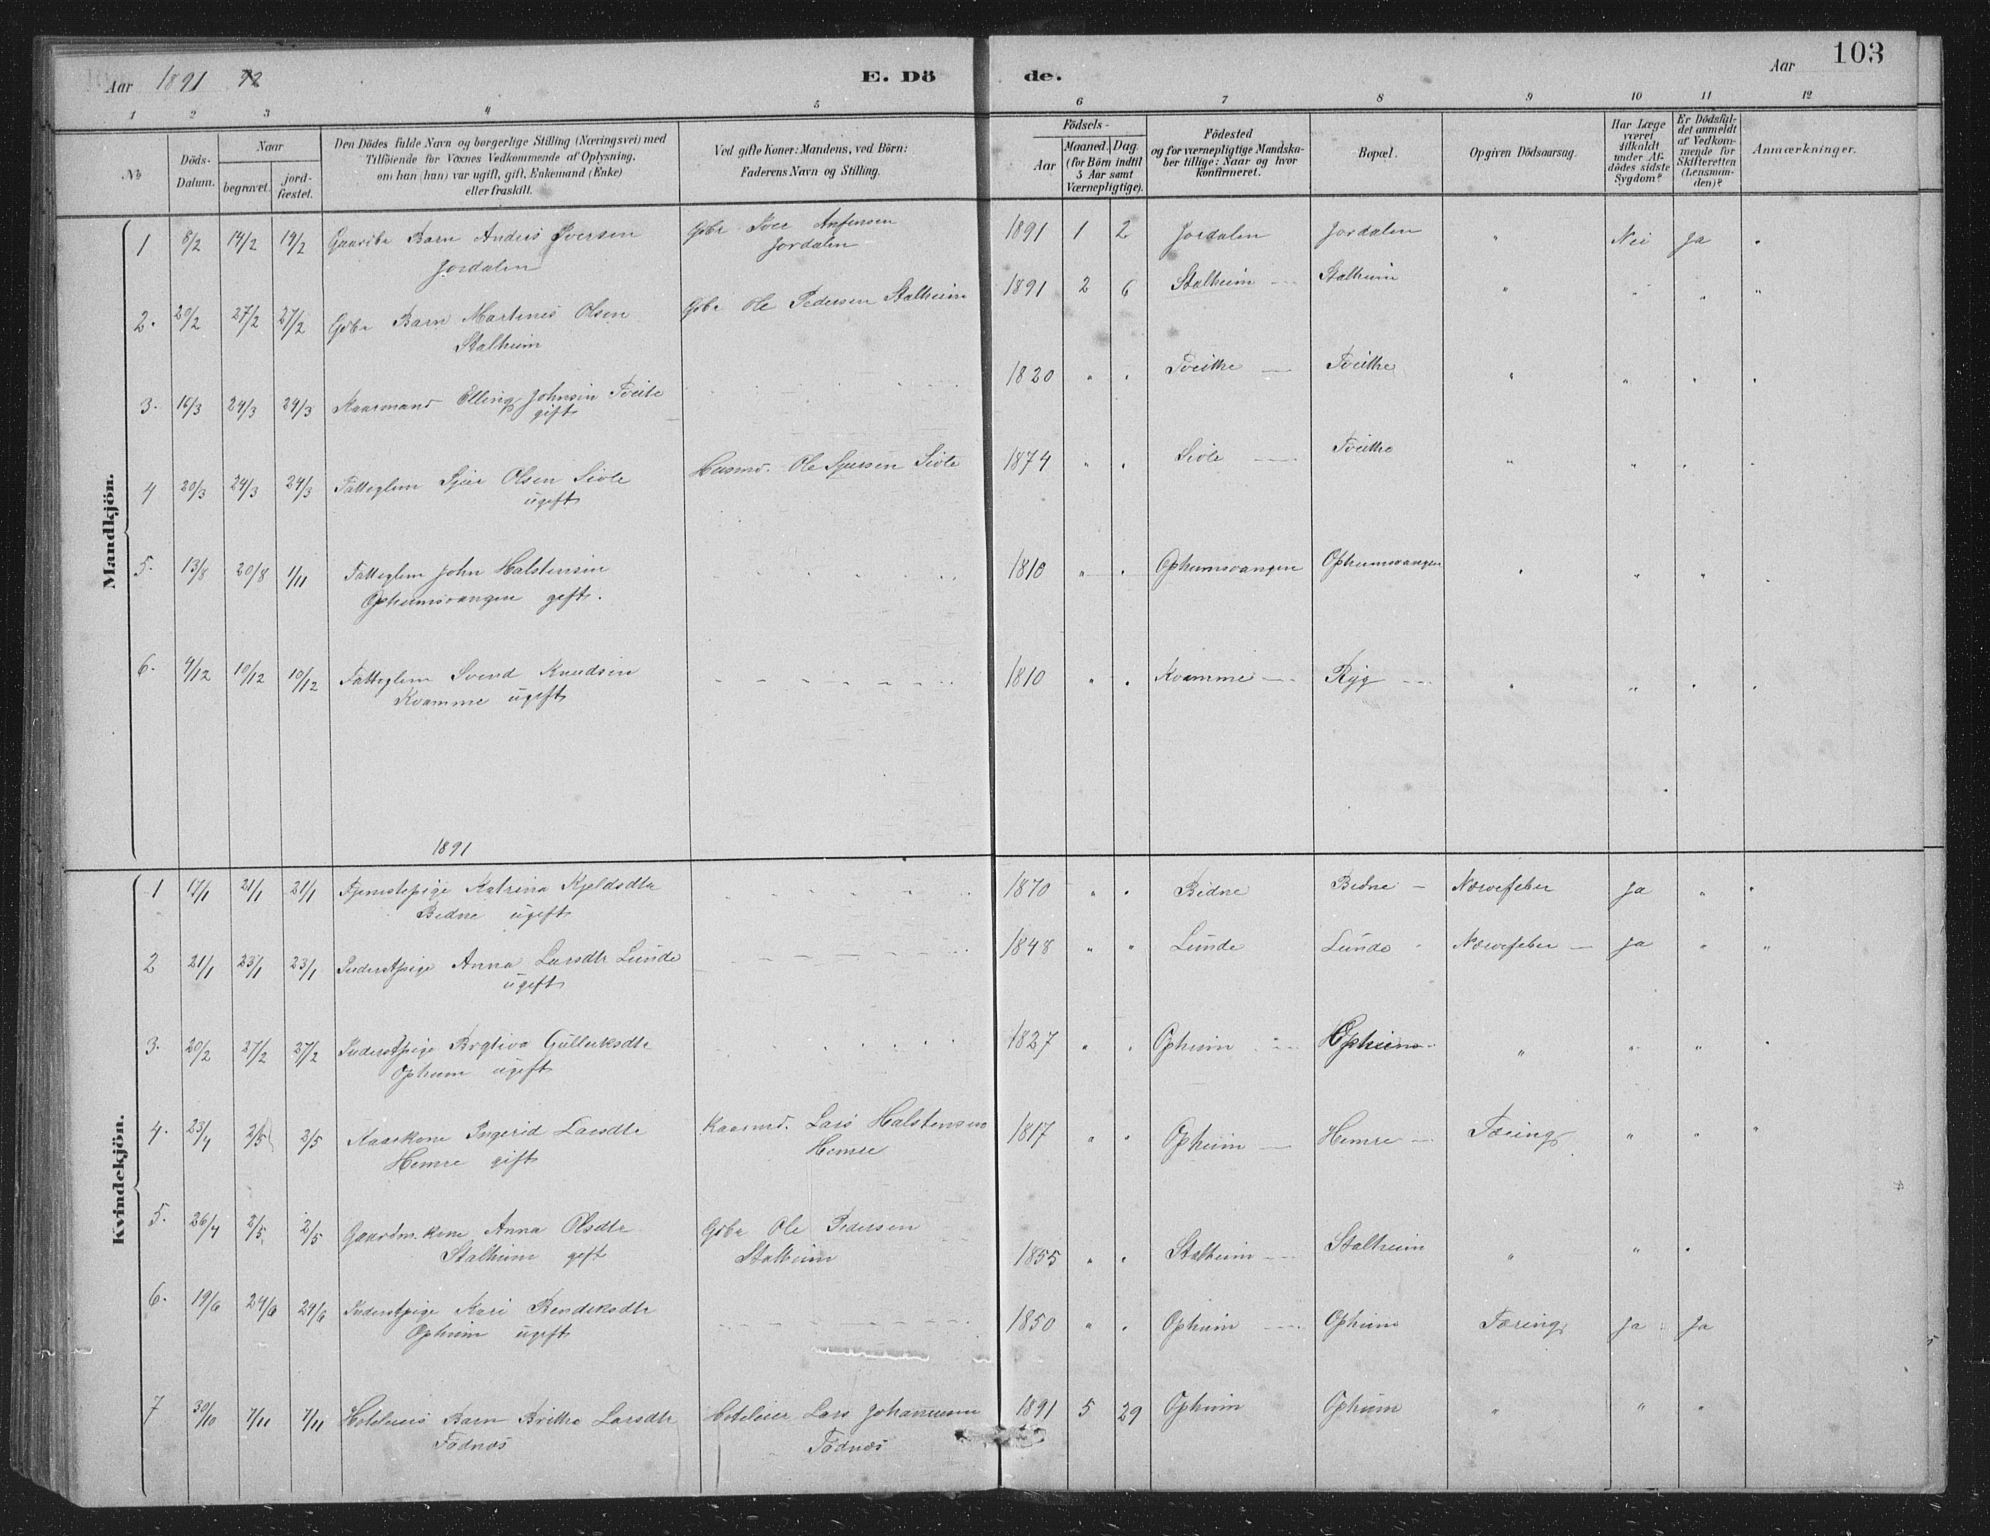 Aar 1891
E. Döde.
Aar
103
1 2 3 4 5 6 7 8 9 10 11 12
No
Döds-Datum.
Naar
begravet.
jordfæstet.
Den Dödes fulde Navn og borgerlige Stilling (Næringsvei) med
Tilföiende for Voxnes Vedkommende af Oplysning,
om han (hun) var ugift, gift, Enkemand (Enke)
eller fraskilt.
Ved gifte Koner: Mandens, ved Börn:
Faderens Navn og Stilling.
Födsels-
Aar
Maaned. Dag
(for Börn indtil
5 Aar samt
Værnepligtige).
Födested
og for værnepligtige Mandska-
ber tillige: Naar og hvor
konfirmeret.
Bopæl.
Opgiven Dödsaarsag.
Har Læge
været
tilkaldt
under Af-
dödes sidste
Sygdom?
Er Dödsfal-
det anmeldt
af Vedkom-
mende for
Skifteretten
(Lensman-
den)?
Anmærkninger.
Mandkjön.
1 8/2 14/2 14/2 Gaardbr Barn Anders Iversen Gbr Iver Anfensen 1891 1 2 Jordalen Jordalen " Nei Ja "
Jordalen Jordalen
2. 20/2 27/2 27/2 Gbr Barn Martinus Olsen Gbr Ole Pedersen Stalheim 1891 2 6 Stalheim Stalheim " " " "
Stalheim
3. 16/3 24/3 24/3 Kaarmand Elling Johnsen Tveite 1820 " " Tveithe Tveithe " " " "
gift
4 20/3 24/3 24/3 Fatteglem Sjur Olsen Sivle Husmd. Ole Sjursen Sivle 1874 " " Sivle Tveithe " " " "
ugift
5. 13/8 20/8 1/11 Fatteglem John Halstensen 1810 " " Ophumsvangen Ophumsvangen " " " "
Ophumsvangen gift.
6. 4/12 10/12 10/12 Fatteglem Svend Knudsen 1810 " " Kvamme Ryg " " " "
Kvamme ugift
1891
Kvindekjön.
1 17/1 21/1 21/1 Tjenestepige Katrina Kjeldsdtr 1870 " " Bidne Bidne Nervefeber Ja " "
Bidne ugift
2 21/1 23/1 23/1 Inderstpige Anna Larsdtr Lunde 1848 " " Lunde Lunde Nervefeber Ja " "
ugift
3. 20/2 27/2 27/2 Inderstpige Brytiva Gulleiksdtr 1827 " " Opheim Opheim " " " "
Opheim ugift
4. 23/4 2/5 2/5 Kaarkone Ingerid Larsdtr Kaarmd. Lars Halstensen 1817 " " Opheim Hemre Tæring " " "
Hemre gift Hemre
5. 26/4 2/5 2/5 Gaardm. kone Anna Olsdtr Gbr Ole Pedersen
Stalheim gift Stalheim 1855 " " Stalheim Stalheim " " "
6. 19/6 24/6 24/6 Inderstpige Kari Bendiksdtr 1850 " " Opheim Opheim Tæring Ja Ja
Opheim ugift
7 30/10 7/11 7/11 Hoteleiers Barn Brithe Larsdtr Hoteleier Lars Johannesen 1891 5 29 Opheim Opheim " " "
Tødnæs Tødnæs